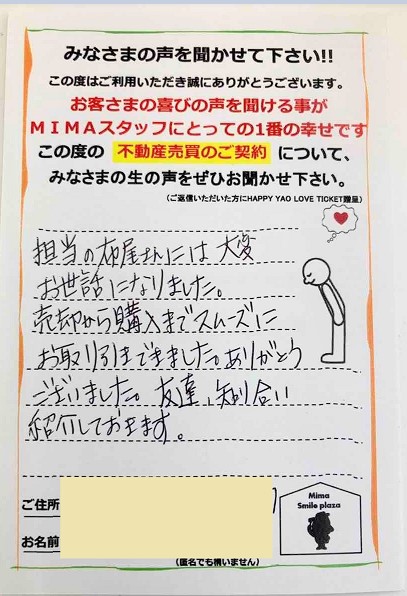 みなさまの声を聞かせて下さい!!
この度はご利用いただき誠にありがとうございます。
お客さまの喜びの声を聞ける事が
MIMAスタッフにとっての1番の幸せです
この度の 不動産売買のご契約 について、
みなさまの生の声をぜひお聞かせ下さい。
(ご返信いただいた方にHAPPY YAO LOVE TICKET贈呈)
担当の布屋さんには 大変
お世話になりました。
売却から購入までスムーズに
お取り引きできました。ありがとう
ございました。友達、知り合い
紹介しておきます。
ご住所
お名前
(匿名でも構いません)
Mima
Smile plaza